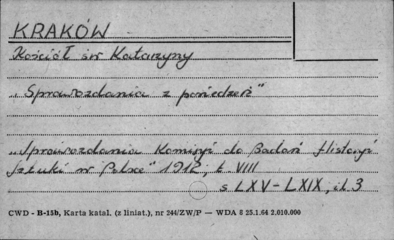 KRAKÓW
Kościół św Katarzyny
„Sprawozdania z posiedzeń”
„Sprawozdania Komisji do Badań Historji
Sztuki w Polsce” 1912, t. VIII
s LXV-LXIX, il. 3
CWD - B-15b, Karta katal. (z liniat.), nr 244/ZW/P — WDA 8 23.1.64 2.010.000